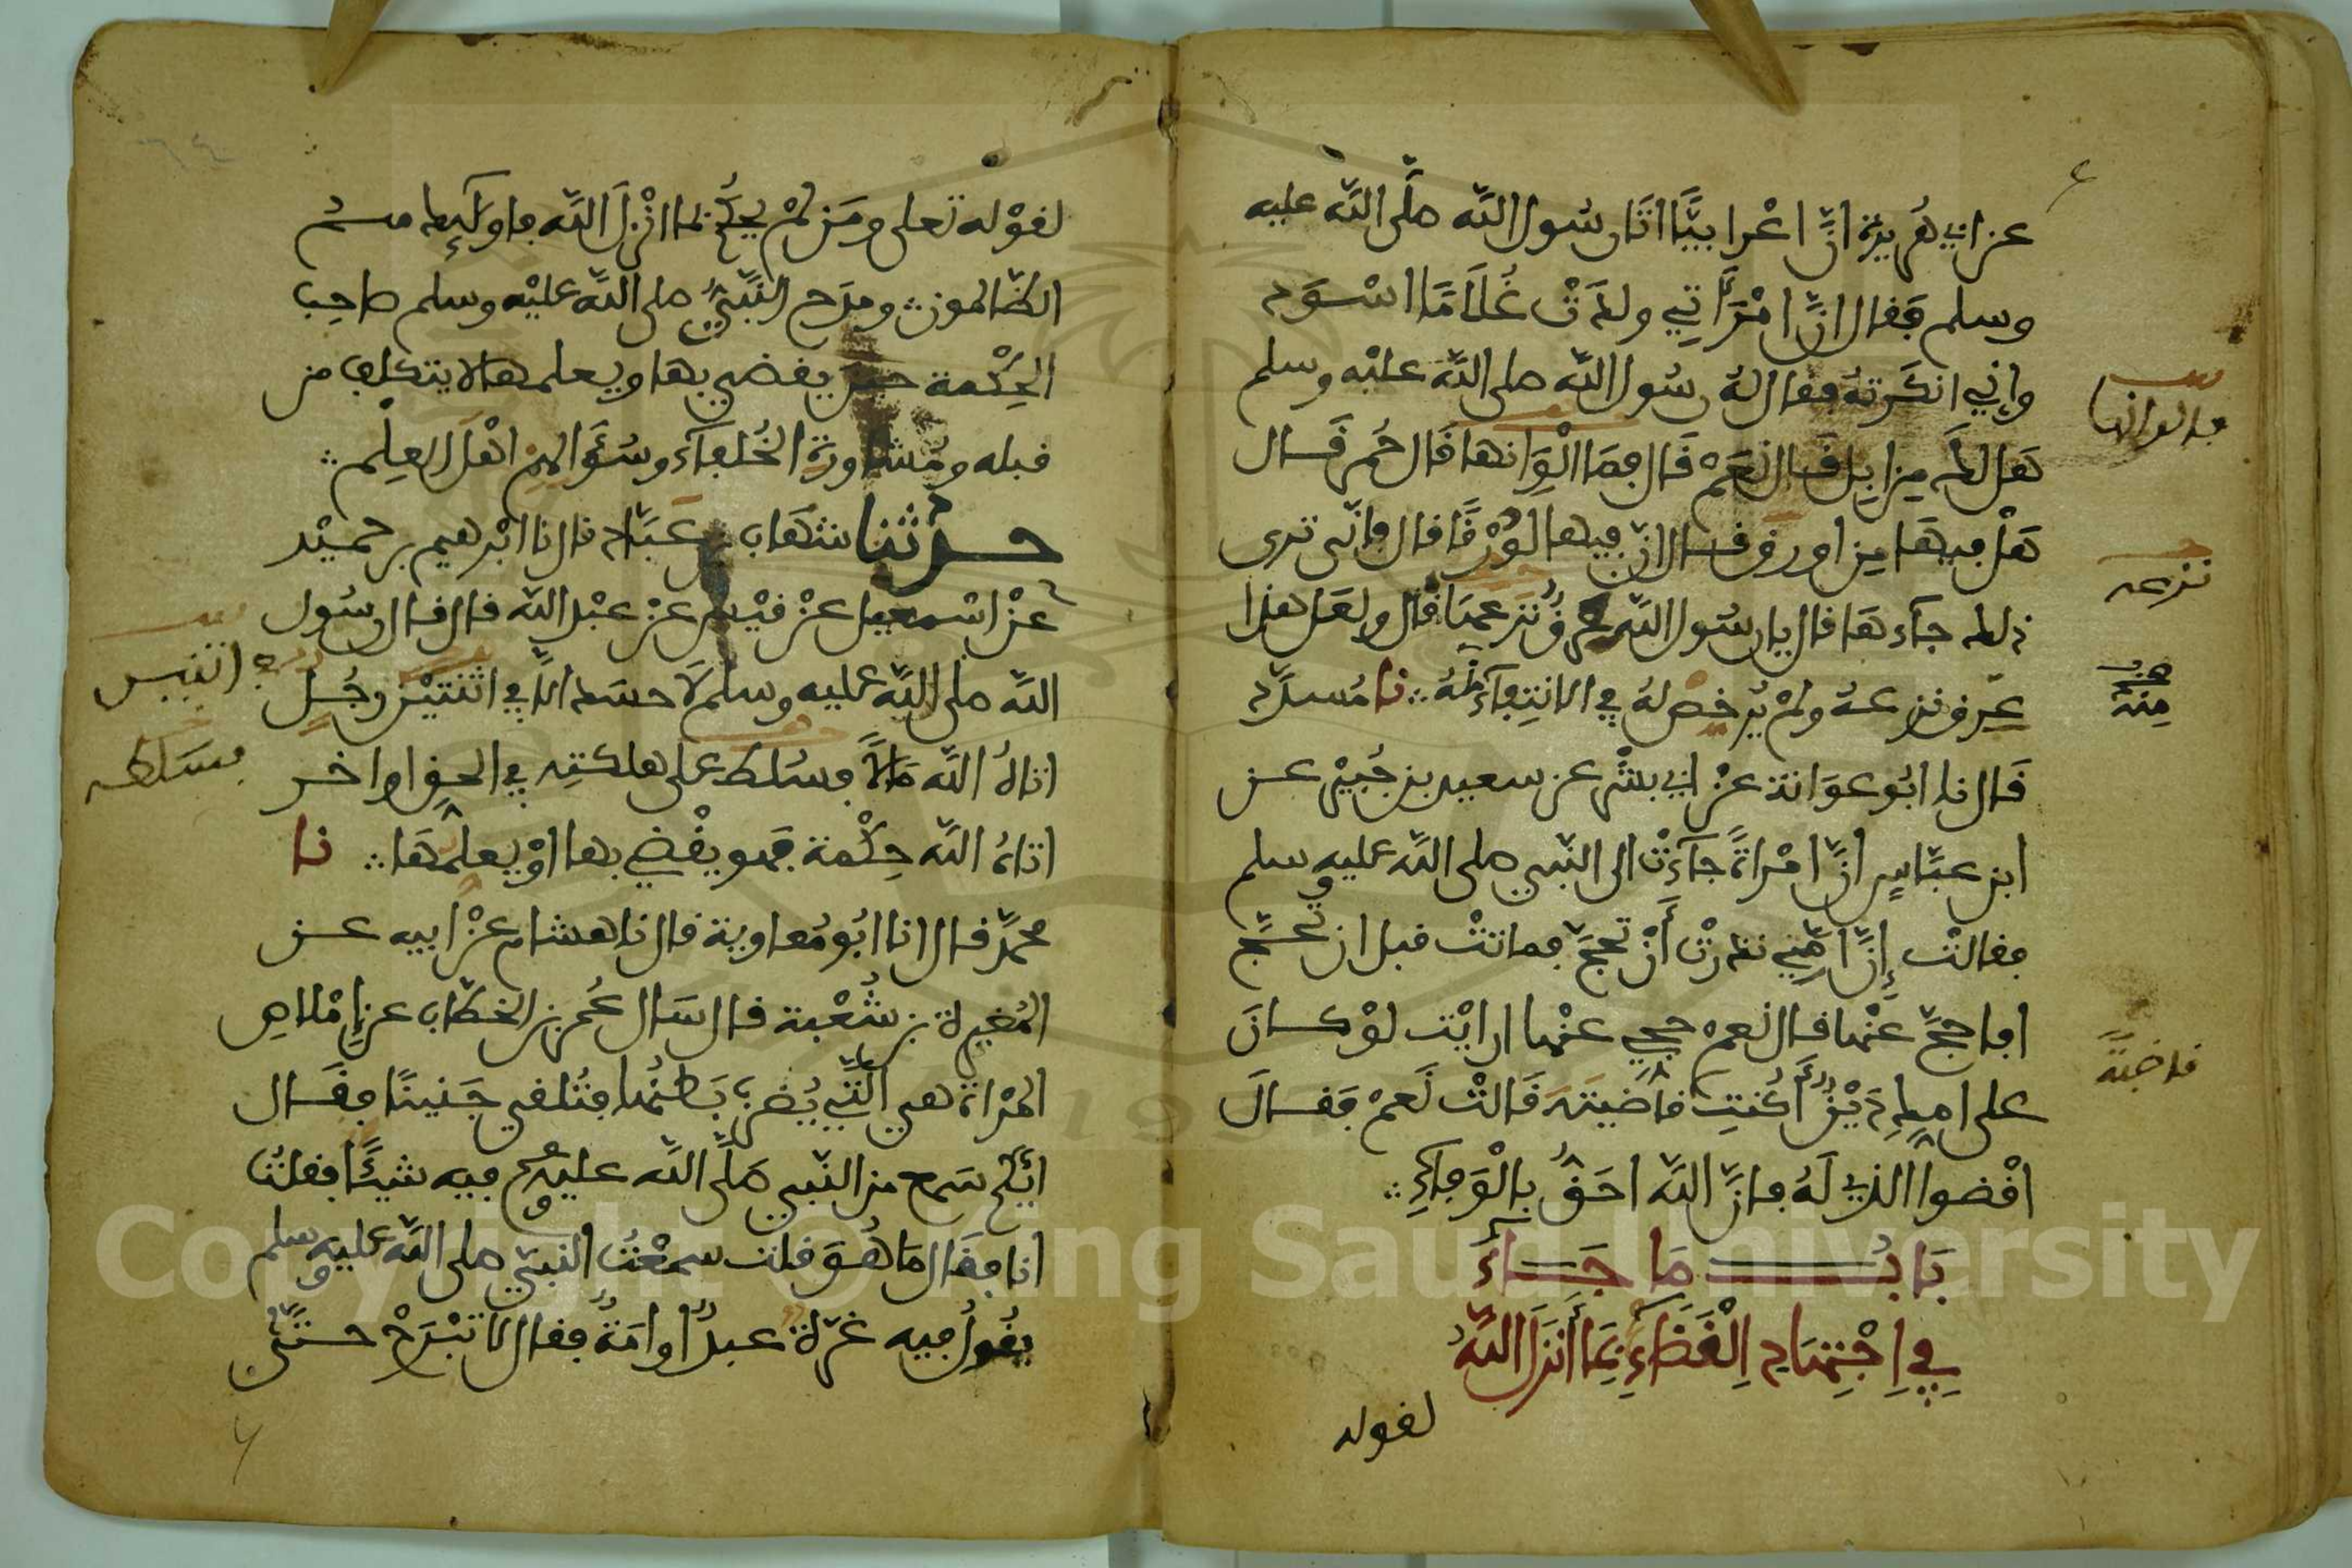 عن ابي هُريرة انّ اعْرابيًّا اتَا رسُول اللّه صلَّى اللّه عليه
وسلم فَقال انّ امْرَأتِي ولدَتْ غُلَامًا اسْوَد
وإنِّي انكَرته فقال لهُ رسُول اللّه صلى اللّه عليْه وسلم
فما الوانها
هَل لكَ مِن ابِل قَال نَعَمْ قَال فمَا الْوَانها قَال حُمر قَال
هَلْ فيهَا مِن اورق قال انّ فيها لوُرْقًا قال فانّى ترى
نزعه
ذلك جآءهَا قال يا رسُول اللّه عِرْقٌ نَزعهَا قال ولعَل هذا
عِرق نزعهُ ولمْ يُرخص لهُ في الانتِفآءِ مِنْهُ ⁘ نا مُسدّد
مِنْهُ
قَال نا ابُو عوَانة عنْ ابي بشْر عن سعيد بن جُبيْر عن
ابن عبّاسٍ انّ امْراةً جآءتْ الى النّبي صلى اللّه عليه وسلم
فقالتْ إنّ امّي نذرتْ أَنْ تحجّ فماتتْ قبل ان تحجّ
افاحجّ عنْها قال نعمْ حجي عنْها ارايْت لوْ كانَ
قاضيَةً
على امكِ دَيْنٌ أَكُنتِ قاضيتَه قَالتْ نَعمْ فَقَالَ
اقْضوا الذي لَهُ فانّ اللّه احَقُّ بالْوَفآءِ ⁘
بَابُ مَا جَآءَ
فِي اِجْتِهَادِ اِلْقَضَآءِ بِمَا أَنزَلَ اللّهُ
لقوله
لقوْله تعلى ومَن لمْ يحكُم بما انْزلَ اللّه فاولَئِك هم
الظالمون ⁘ ومدَح النّبيُّ صلى اللّه عليْه وسلم صاحِب
الحِكْمة حينَ يقضي بها ويعلمها لا يتكلف من
قبله ومُشاورة الخُلفآء وسُؤالهِم اهْل العِلْم ⁘
حدثنا شهَاب بن عَبّاد قال نا ابْرهيم بن حميْد
عنْ اسْمعيل عنْ قيْس عنْ عبْد اللّه قال قال رسُول
اللّه صلى اللّه عليه وسلم لَا حسَد الّا في اثْنتيْن رجُل
اثنين
اتاهُ اللّه مَالًا فسُلط على هلكتِه في الحقِ او اخر
فسلطه
اتاهُ اللّه حِكْمة فهو يقْضي بها اوْ يعلّمهَا ⁘ نا
محمدٌ قال انا ابُو مُعاوية قال نا هشام عنْ ابيه عن
المُغيرة بن شُعْبة قال سَال عُمر بن الخطّاب عن اِمْلاص
المرْاة هي الّتي يُضرب بَطنُها فتُلقي جَنينًا فقَال
ايّكم سَمع من النّبي صلّى اللّه عليه وسلم فيه شيئًا فقلتُ
انا فقَال مَا هُوَ قلت سمعْتُ النبيّ صلى اللّه عليه وسلم
يقُولُ فيه غرّة عبدٌ او امَةٌ فقال لا تبْرَحْ حتّى